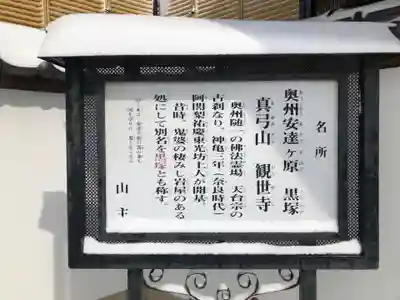 名所
奥州安達ヶ原 黒塚
真弓山 観世寺
奥州随一の佛法霊場 天台宗の
古刹なり、神亀三年(奈良時代)
阿闍梨祐慶東光坊上人が開基。
昔時、鬼婆の棲みし岩屋のある
処にして別名を黒塚とも称す。
山主